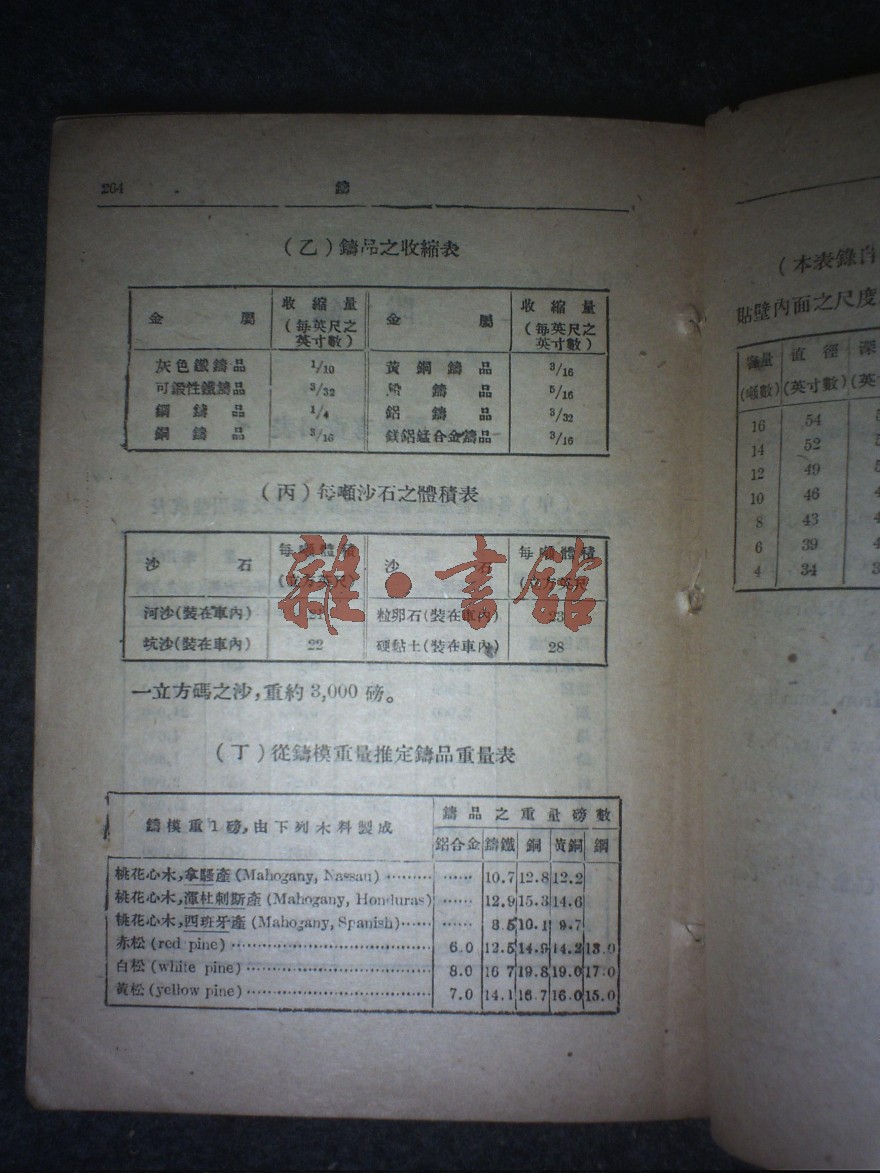 264 鑄
(乙)鑄品之收縮表
金屬 收縮量(每英尺之英寸數) 金屬 收縮量(每英尺之英寸數)
灰色鐵鑄品 1/10 黃銅鑄品 3/16
可鍛性鐵鑄品 3/32 鑄品 5/16
鋼鑄品 1/4 鋁鑄品 3/32
銅鑄品 3/16 鎂鋁錳合金鑄品 3/16
(丙)每噸沙石之體積表
沙石 每噸體積(立方英尺) 沙石 每噸體積(立方英尺)
河沙(裝在車內) 21 粒卵石(裝在車內) 23
坑沙(裝在車內) 22 硬黏土(裝在車內) 28
雜·書館
一立方碼之沙,重約3,000磅。
(丁)從鑄模重量推定鑄品重量表
鑄模重1磅,由下列木料製成 鑄品之重量磅數
鋁合金 鑄鐵 銅 黃銅 鋼
桃花心木,拿騷產(Mahogany, Nassau) ········· ······ 10.7 12.8 12.2
桃花心木,渾杜剌斯產(Mahogany, Honduras) ······ 12.9 15.3 14.6
桃花心木,西班牙產(Mahogany, Spanish)······ ······ 8.5 10.1 9.7
赤松(red pine) ·································· 6.0 12.5 14.9 14.2 13.0
白松(white pine) ······························· 8.0 16.7 19.8 19.0 17.0
黃松(yellow pine) ······························ 7.0 14.1 16.7 16.0 15.0
(本表錄自
貼壁內面之尺度
容量(噸數) 直徑(英寸數) 深(英
16 54
14 52
12 49
10 46
8 43
6 39
4 34